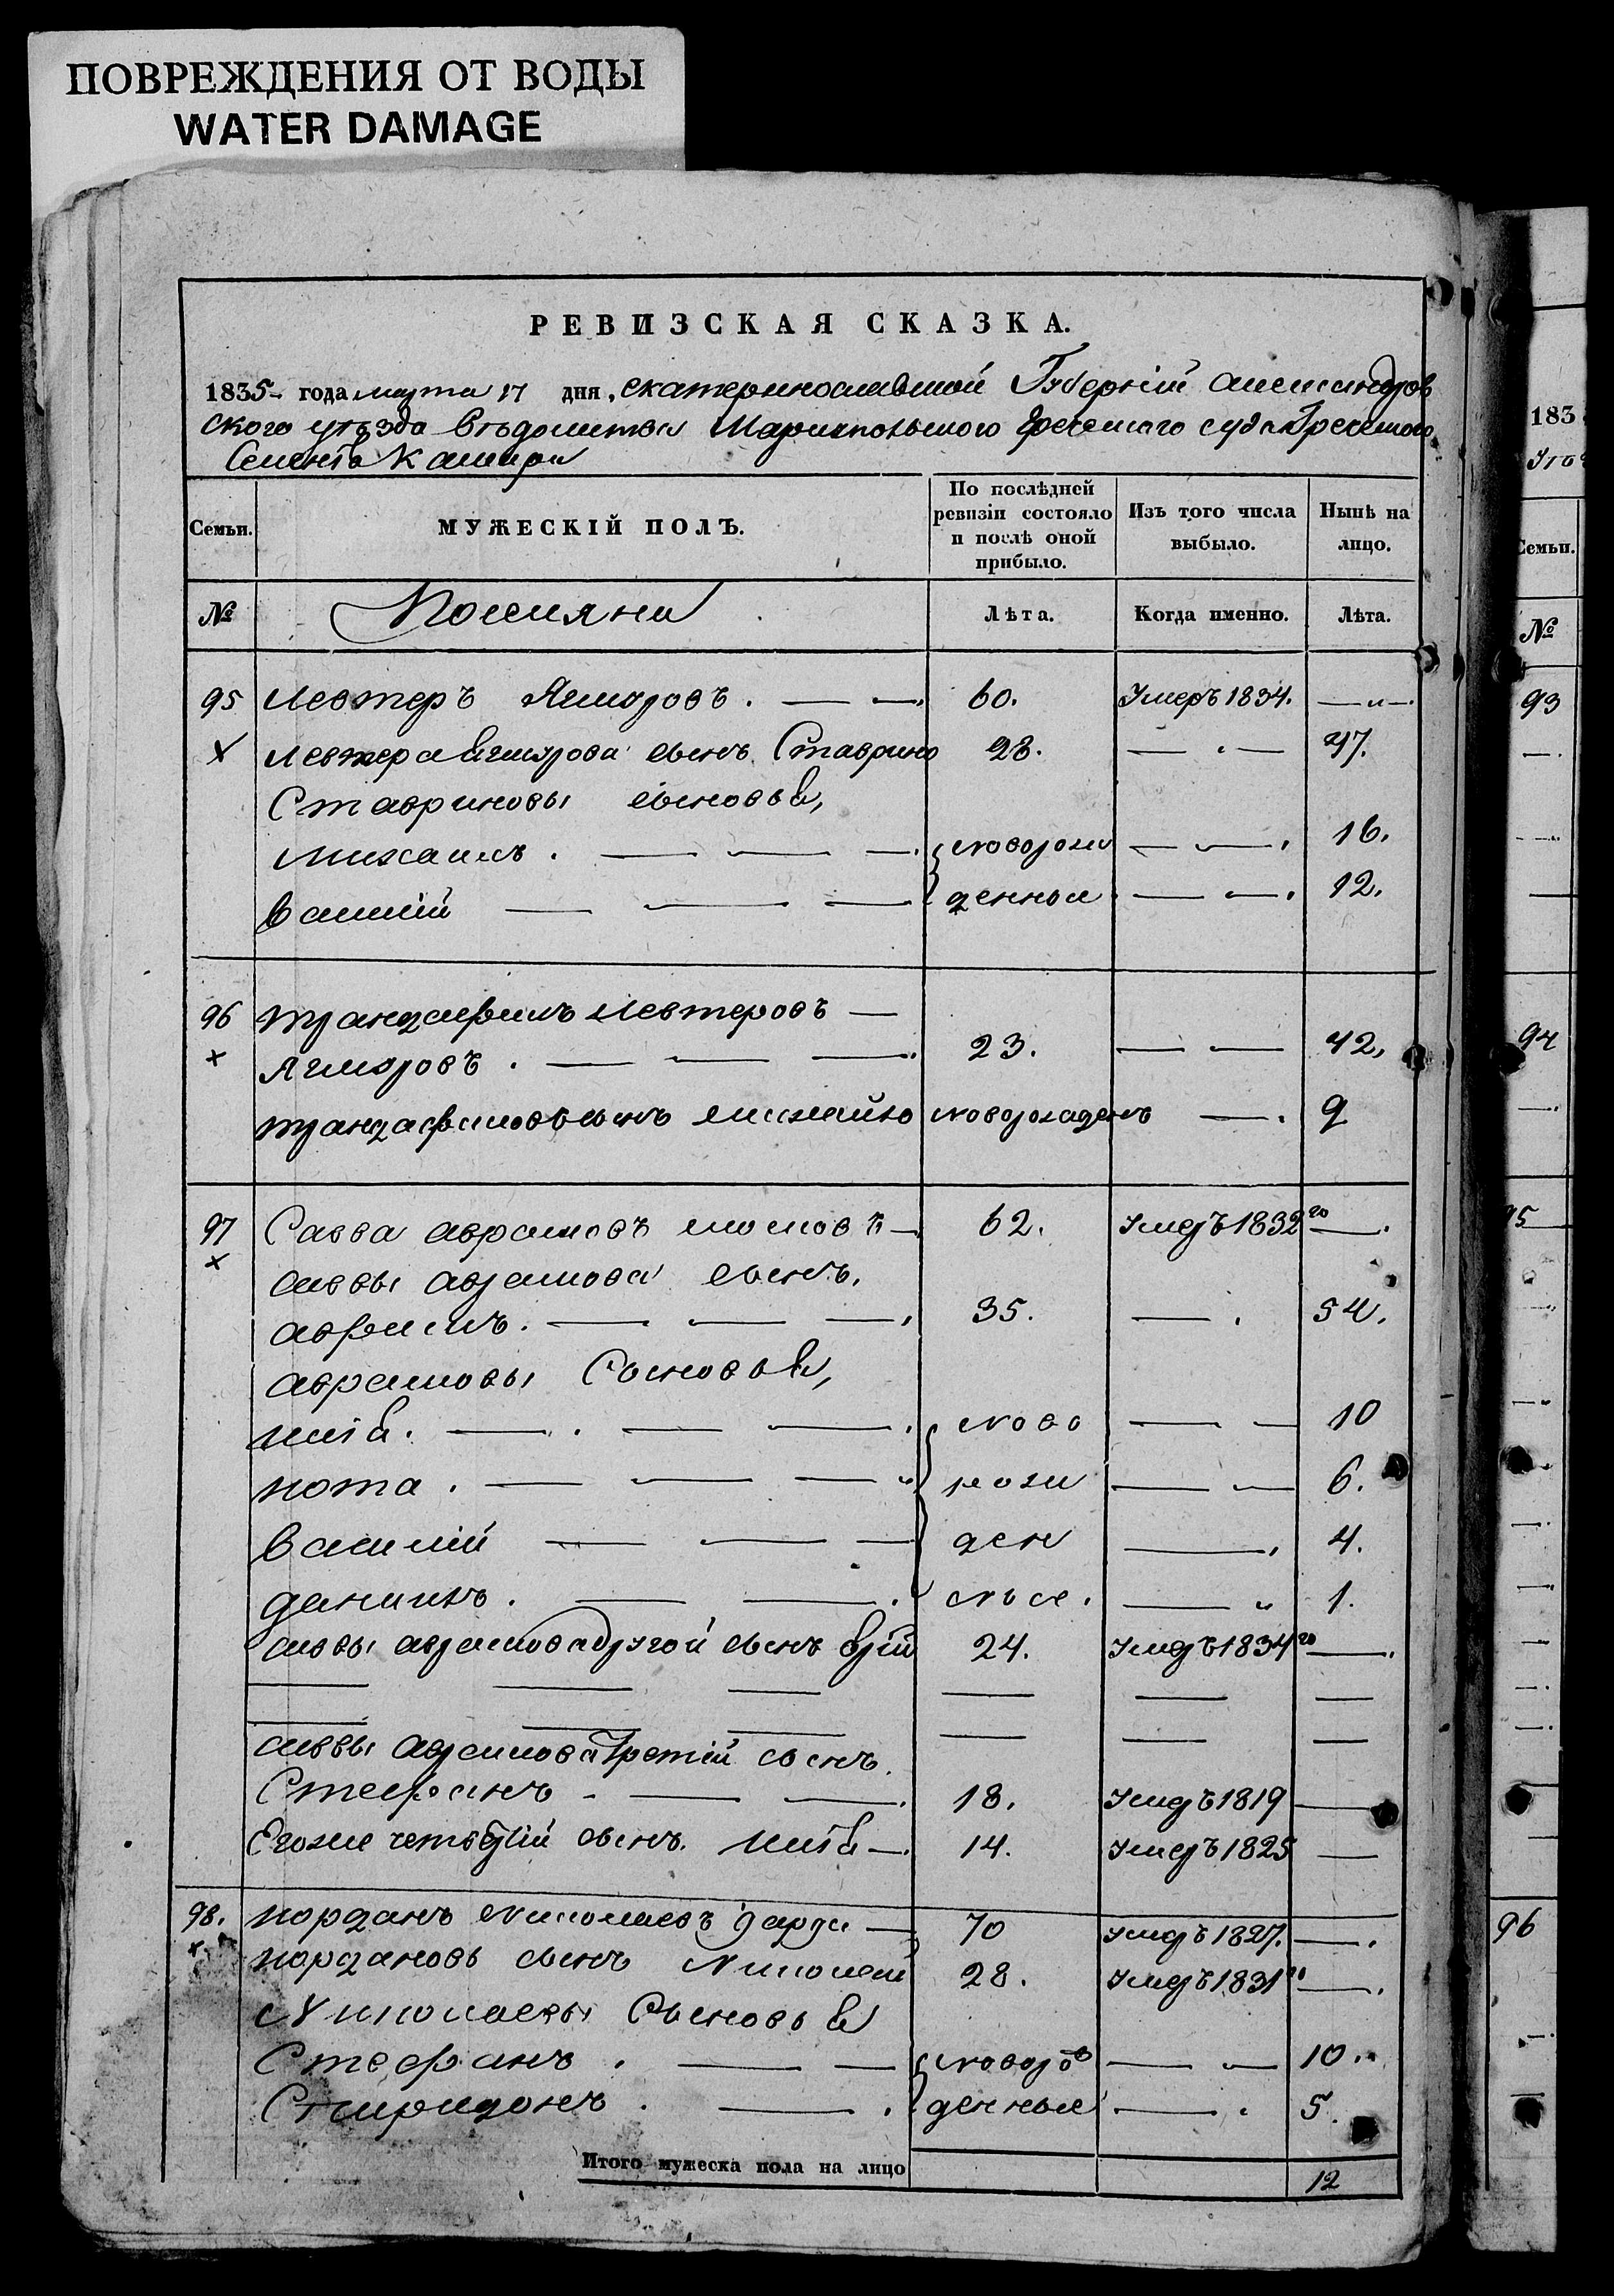 ПОВРЕЖДЕНИЯ ОТ ВОДЫ
WATER DAMAGE
РЕВИЗСКАЯ СКАЗКА.
1835 года марта 17 дня, екатеринославской Губерніи александров
ского уѣзда Вѣдомства Мариупольского Греческаго суда Греческого
Селенія
Семьи.
МУЖЕСКІЙ ПОЛЪ.
По послѣдней ревизіи состояло и послѣ оной прибыло.
Изъ того числа выбыло.
Нынѣ на лицо.
№
Поселяни
Лѣта.
Когда именно.
Лѣта.
95 Левтеръ Ягмуровъ. — — 60. Умеръ 1834. — „ —
х Левтера Ягмурова сынъ Ставрино 28. — 47.
Ставриновы сыновья,
Михаилъ. — — — новорож — — 16.
Василій — — — денныя — — 12.
96 трандафилъ Левтеровъ —
х Ягмуровъ. — — — 23. — — 42.
трандафиловъ сынъ михайло новорожденъ — 9
97 Савва аврамовъ — 62. умеръ 1832го —
х саввы аврамова сынъ,
аврамъ. — — — 35. — 54.
аврамовы Сыновья,
илія. — — — ново — — 10
кота. — — — рож — — 6.
Василій — — — ден — 4.
данилъ. — — ные. — „ 1.
саввы аврамова другой сынъ юрій 24. умеръ 1834го —
саввы аврамова третій сынъ.
Стефанъ — — 18. умеръ 1819 —
Егоже четвертій сынъ. илія — 14. умеръ 1825 —
98. иорданъ николаевъ — 70 умеръ 1827. —
х иордановъ сынъ Николай 28. умеръ 1831го —
Николаевы Сыновья
Стефанъ. — — новорож — — 10.
Спиридонъ. — денные — 5.
Итого мужеска пола на лицо 12
183
Семьи.
№
93
94
95
96